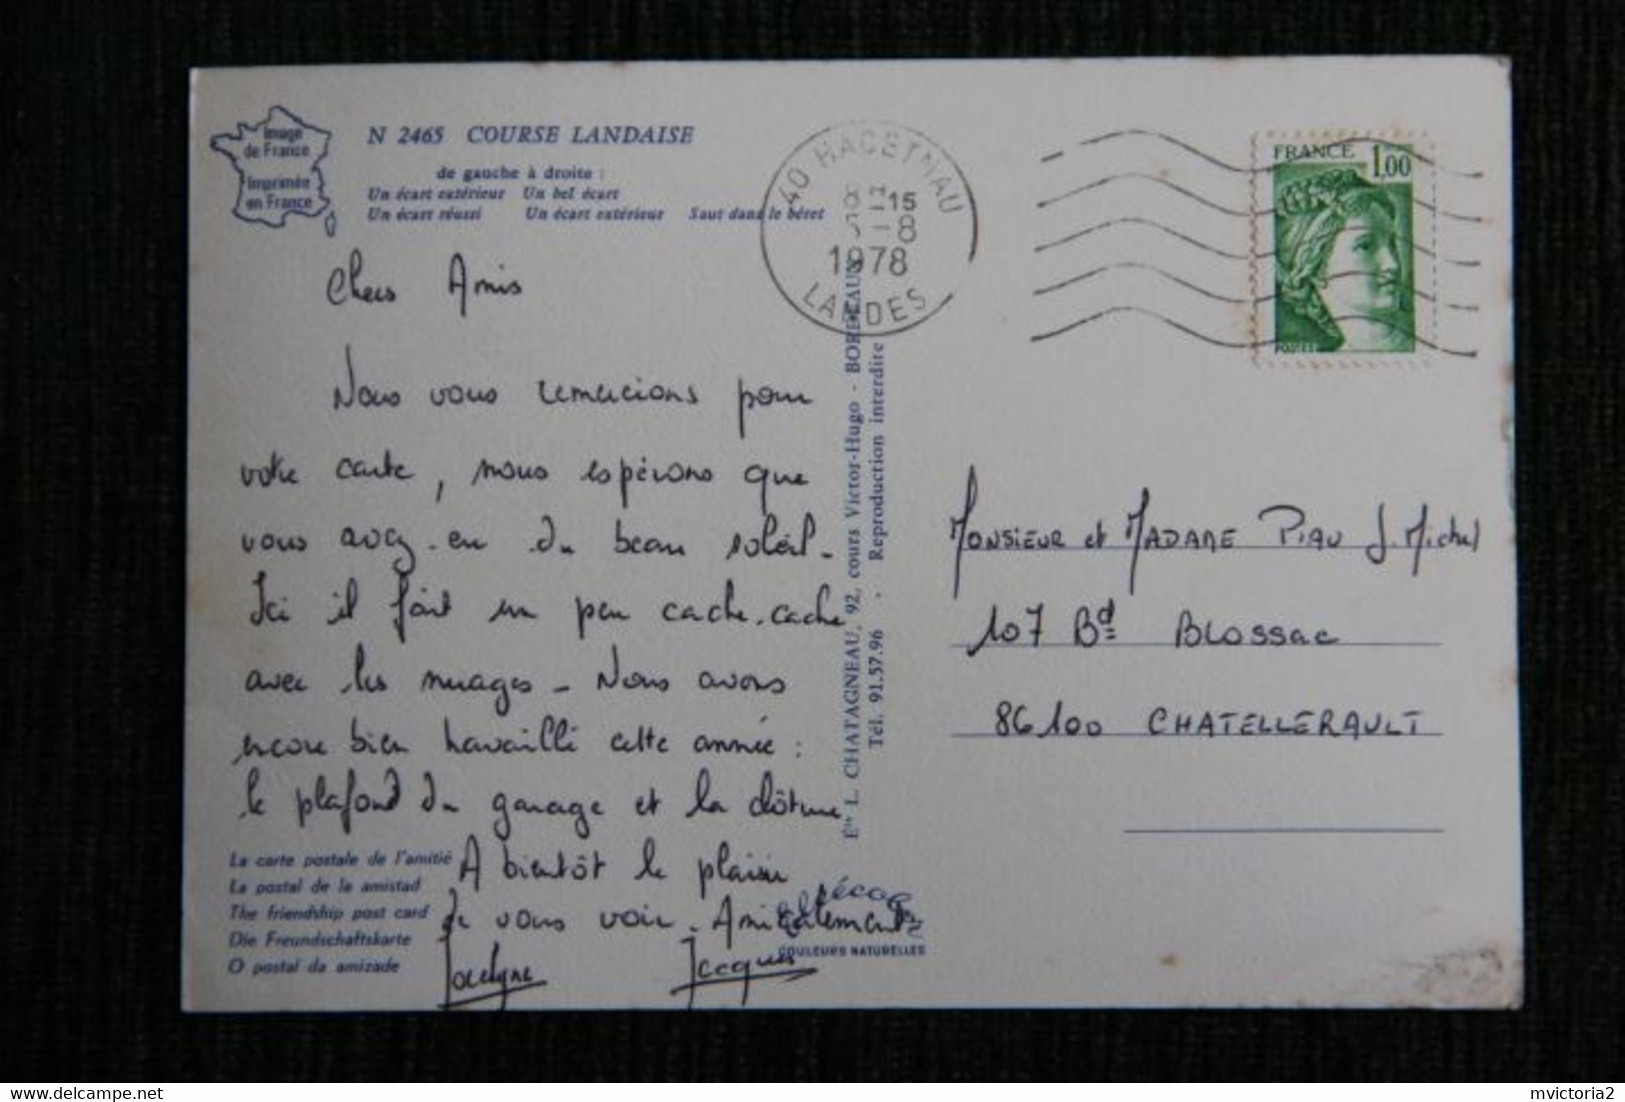 Image
de France
Imprimée
en France
N 2465 COURSE LANDAISE
de gauche à droite :
Un écart extérieur Un bel écart
Un écart réussi Un écart extérieur Saut dans le béret
40 HAGETMAU
15
8
1978
LANDES
FRANCE 1,00
Chers Amis
Nous vous remercions pour
votre carte, nous espérons que
vous avez eu du beau soleil -
Ici il fait un peu cache-cache
avec les nuages - Nous avons
encore bien travaillé cette année :
le plafond du garage et la clôture
A bientôt le plaisir
de vous voir - Amicalement
Jocelyne Jacques
La carte postale de l'amitié
La postal de la amistad
The friendship post card
Die Freundschaftskarte
O postal da amizade
COULEURS NATURELLES
Éts L. CHATAGNEAU, 92, cours Victor-Hugo - BORDEAUX
Tél. 91.57.96 - Reproduction interdite
MONSIEUR et MADAME PIAU J. Michel
107 Bd BLOSSAC
86100 CHATELLERAULT
mvictoria2